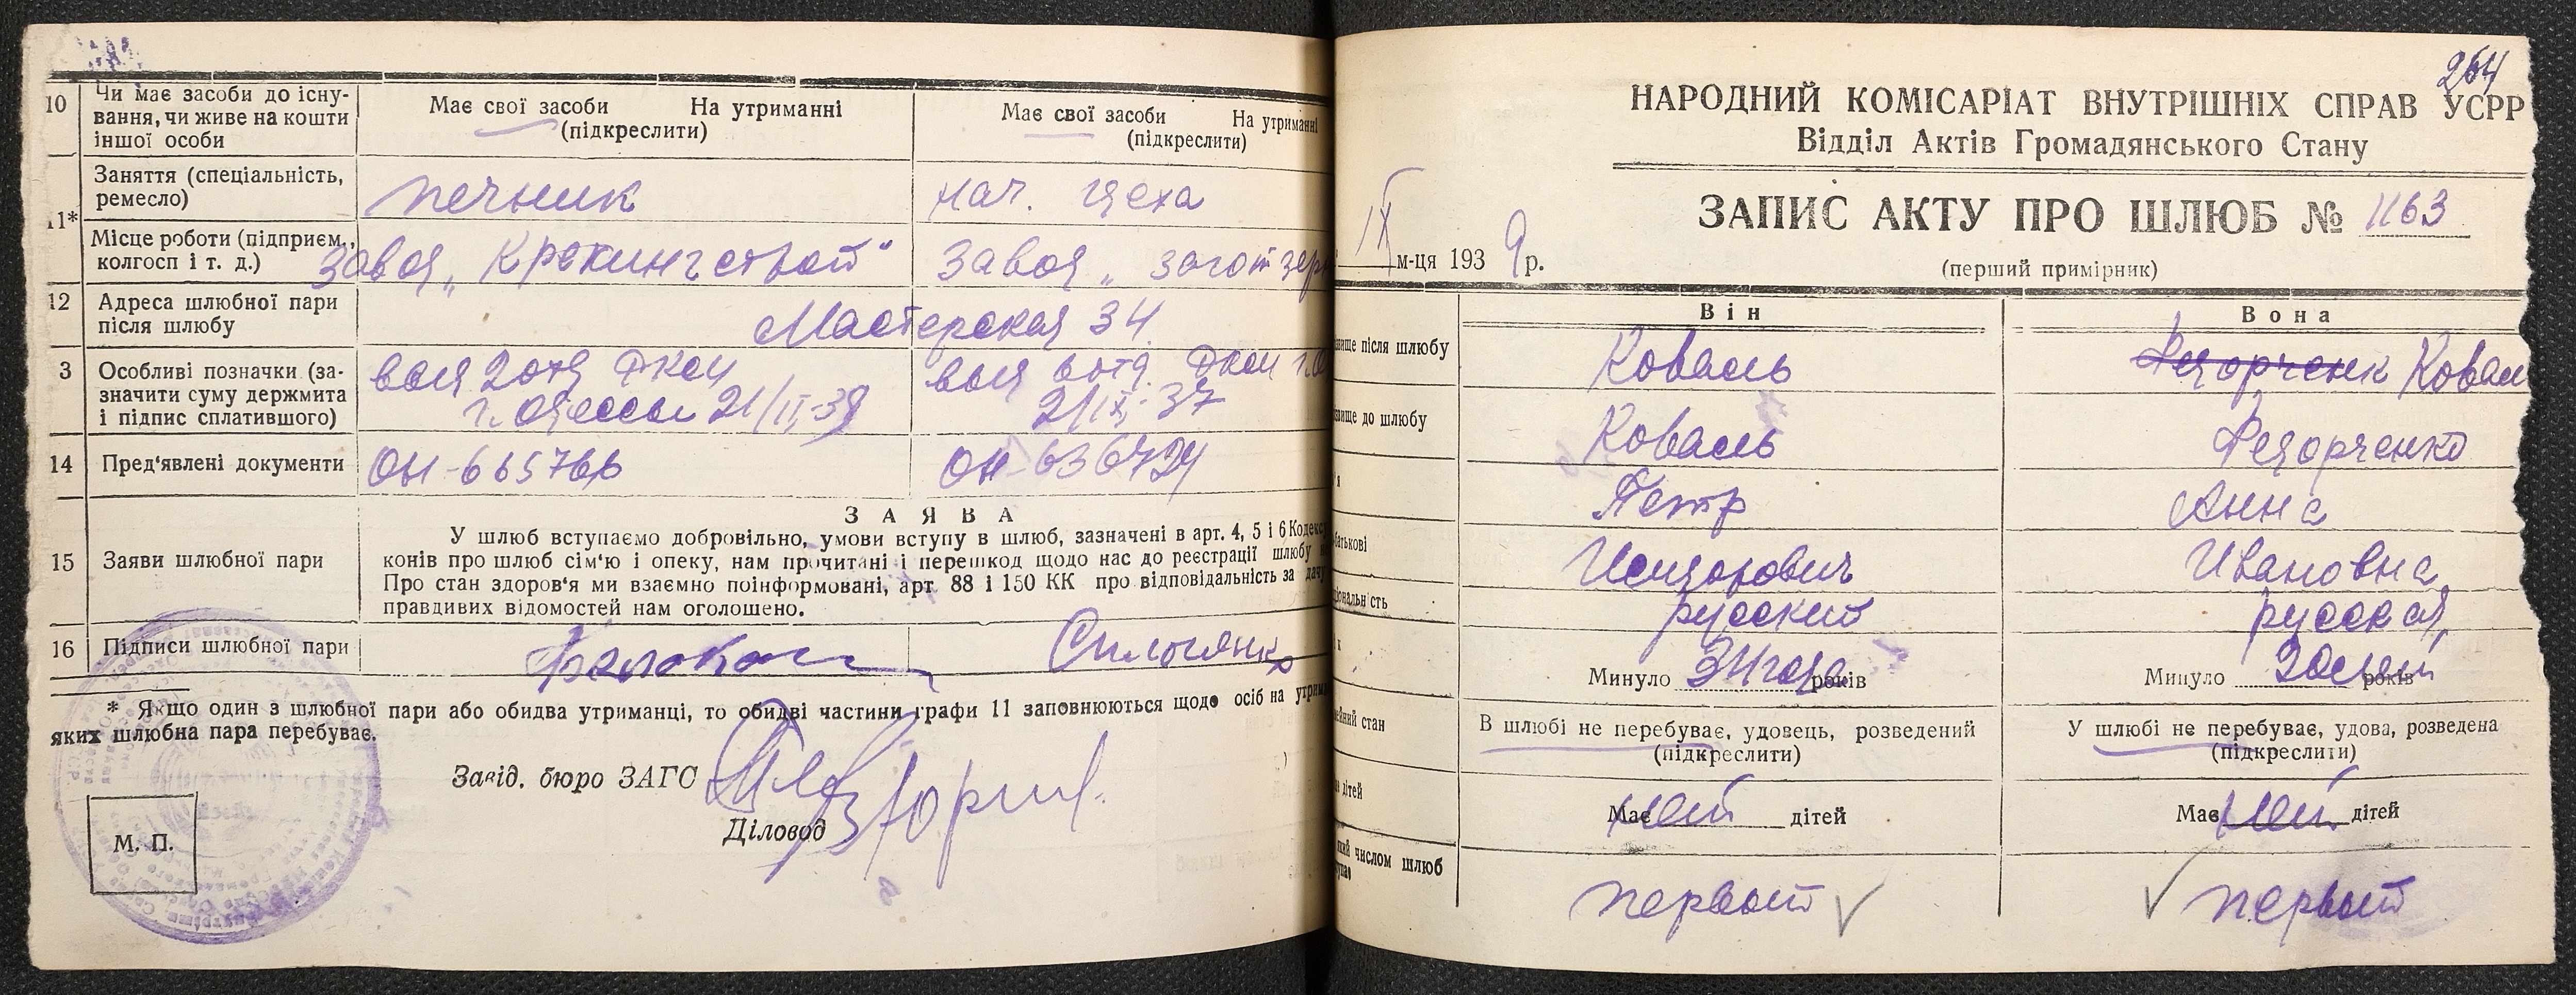 10 Чи має засоби до існу-
вання, чи живе на кошти
іншої особи
Має свої засоби На утриманні
(підкреслити)
Має свої засоби На утриманні
(підкреслити)
11*
Заняття (спеціальність,
ремесло)
печник
нач. цеха
Місце роботи (підприєм.,
колгосп і т. д.)
завод „Крекингстрой"
завод „заготзер
12 Адреса шлюбної пари
після шлюбу
Мастерская 34
3 Особливі позначки (за-
значити суму держмита
і підпис сплатившого)
г. Одессы 21/II-39
21/IX-37
14 Пред'явлені документи
ОН-665766
ОН-636724
ЗАЯВА
15 Заяви шлюбної пари
У шлюб вступаємо добровільно, умови вступу в шлюб, зазначені в арт. 4, 5 і 6 Кодекс
конів про шлюб сім'ю і опеку, нам прочитані і перешкод щодо нас до реєстрації шлюбу
Про стан здоров'я ми взаємно поінформовані, арт. 88 і 150 КК про відповідальність за дачу
правдивих відомостей нам оголошено.
16 Підписи шлюбної пари
* Якщо один з шлюбної пари або обидва утриманці, то обидві частини графи 11 заповнюються щодо осіб на утрим
яких шлюбна пара перебуває.
Завід. бюро ЗАГС
Діловод
М. П.
264
НАРОДНИЙ КОМІСАРІАТ ВНУТРІШНІХ СПРАВ УСРР
Відділ Актів Громадянського Стану
ЗАПИС АКТУ ПРО ШЛЮБ № 1163
IX м-ця 1939 р.
(перший примірник)
Він Вона
вище після шлюбу Коваль Федорченк Ковал
вище до шлюбу Коваль Федорченко
Петр Анна
батькові Исидорович Ивановна
ціональність русский русская
Минуло 34 года років
Минуло 20 лет років
ейний стан
В шлюбі не перебуває, удовець, розведений
(підкреслити)
У шлюбі не перебуває, удова, розведена
(підкреслити)
дітей
Має нет дітей
Має нет дітей
числом шлюб
первый
первый